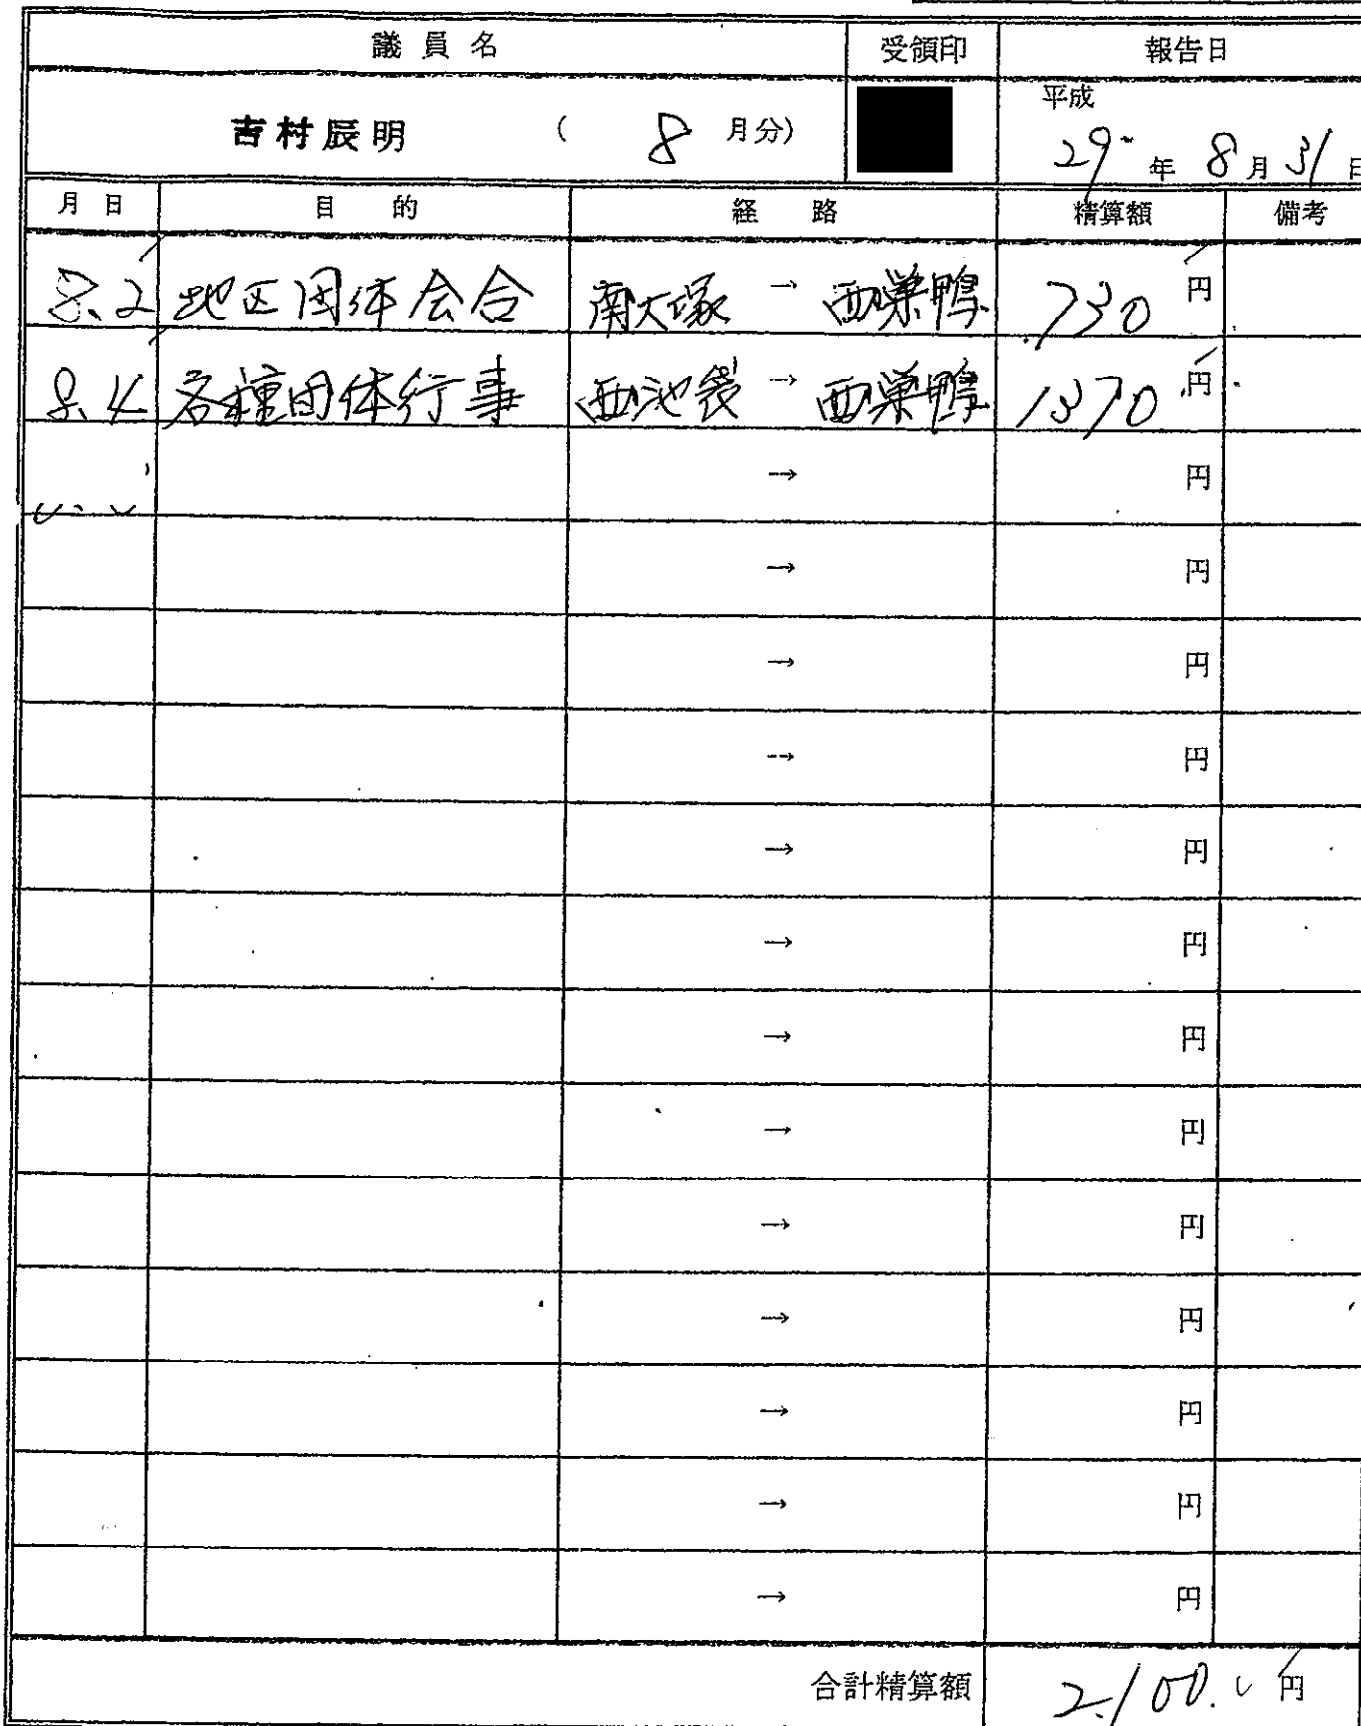 議員名 受領印 報告日
吉村辰明 ( 8 月分) 平成 29 年 8 月 31 日
月日 目的 経路 精算額 備考
8.2 地区団体会合 南大塚 → 西巣鴨 730 円
8.4 各種団体行事 西池袋 → 西巣鴨 1370 円
→ 円
→ 円
→ 円
→ 円
→ 円
→ 円
→ 円
→ 円
→ 円
→ 円
→ 円
→ 円
→ 円
合計精算額 2,100 円